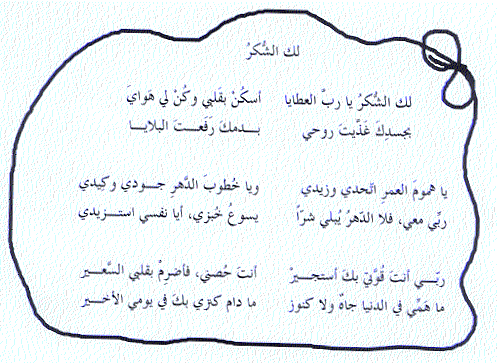 لك الشُّكرُ
لك الشُّكرُ يا ربَّ العطايا أسكُنْ بقلبي وكُنْ لي هَوايَ
بجسدِكَ غَذَّيتَ روحي بـدمكَ رَفَعـتَ البلايـا
يا همومَ العمرِ اتّحدي وزيدي ويا خُطوبَ الدَّهرِ جـودي وكِيدي
ربِّي معي، فلا الدّهرُ يُبلي شرّاً يسوعُ خُبزي، أيا نفسي استـزيدي
ربّـي أنتَ قُوَّتي بكَ أستجيرْ أنتَ حُصني، فأضرِمْ بقلبي السَّعـير
ما هَمِّي في الدنيا جاهٌ ولا كنوز ما دام كنزي بكَ في يومي الأخـير